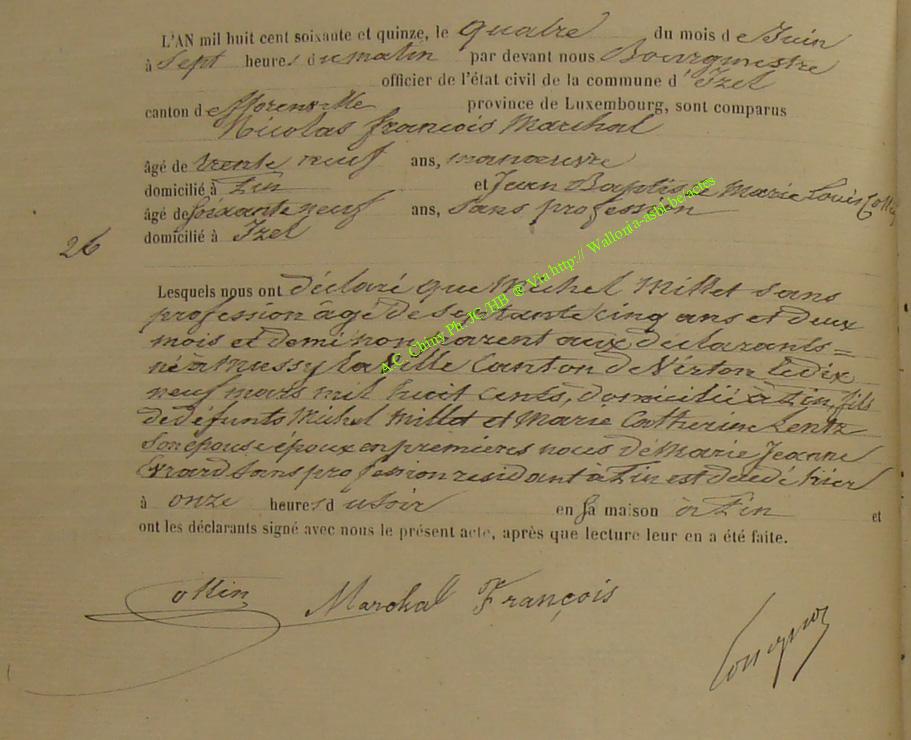 L'AN mil huit cent soixante et quinze, le quatre du mois d e Juin
à Sept heures du matin par devant nous Bourgmestre
officier de l'état civil de la commune d' Izel
canton de Florenville province de Luxembourg, sont comparus
Nicolas François Marchal
âgé de trente neuf ans, manoeuvre
domicilié à Pin et Jean Baptiste Marie Louis Collin
âgé de Soixante neuf ans, Sans profession
26 domicilié à Izel
Lesquels nous ont déclaré que Michel Millet Sans
profession âgé de septante cinq ans et deux
mois et demi non parent aux declarants =
né à Mussy la Ville Canton de Virton le dix
neuf mars mil huit cents, domicilié à Pin, fils
de défunts Michel Millet et Marie Catherine Lentz
Son épouse époux en premières noces de Marie Jeanne
Evrard Sans profession residant à Pin est decedé hier
à onze heures d u soir en Sa maison à Pin et
ont les déclarants signé avec nous le présent acte, après que lecture leur en a été faite.
Collin Marchal François
A.C. Chiny Ph. JC/HB @ Via http:// Wallonia-asbl.be/actes